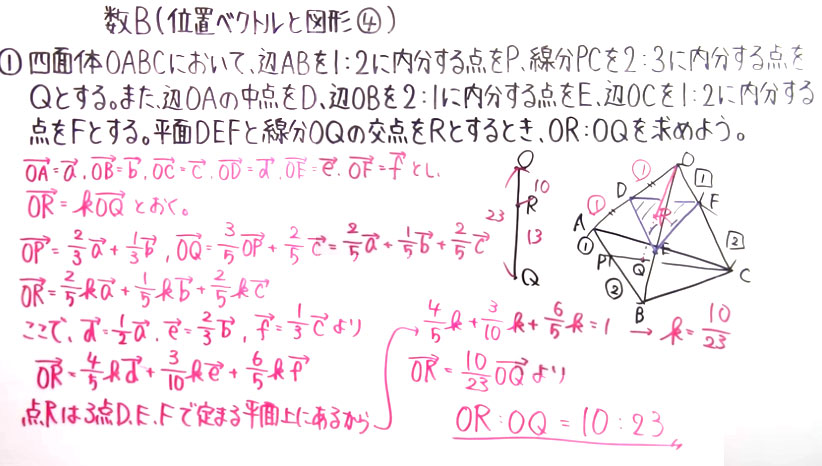 数B(位置ベクトルと図形④)
① 四面体OABCにおいて、辺ABを1:2に内分する点をP、線分PCを2:3に内分する点を
Qとする。また、辺OAの中点をD、辺OBを2:1に内分する点をE、辺OCを1:2に内分する
点をFとする。平面DEFと線分OQの交点をRとするとき、OR:OQを求めよう。
→OA=→a, →OB=→b, →OC=→c, →OD=→d, →OE=→e, →OF=→f とし、
→OR=k→OQ とおく。
→OP=2/3→a+1/3→b, →OQ=3/5→OP+2/5→c=2/5→a+1/5→b+2/5→c
→OR=2/5k→a+1/5k→b+2/5k→c
ここで、→d=1/2→a, →e=2/3→b, →f=1/3→c より
→OR=4/5k→d+3/10k→e+6/5k→f
点Rは3点D、E、Fで定まる平面上にあるから
4/5k+3/10k+6/5k=1 → k=10/23
→OR=10/23→OQより
OR:OQ=10:23
O
10
R
23
13
Q
O
①
1
D
F
①
R
A
①
E
2
P
Q
C
②
B